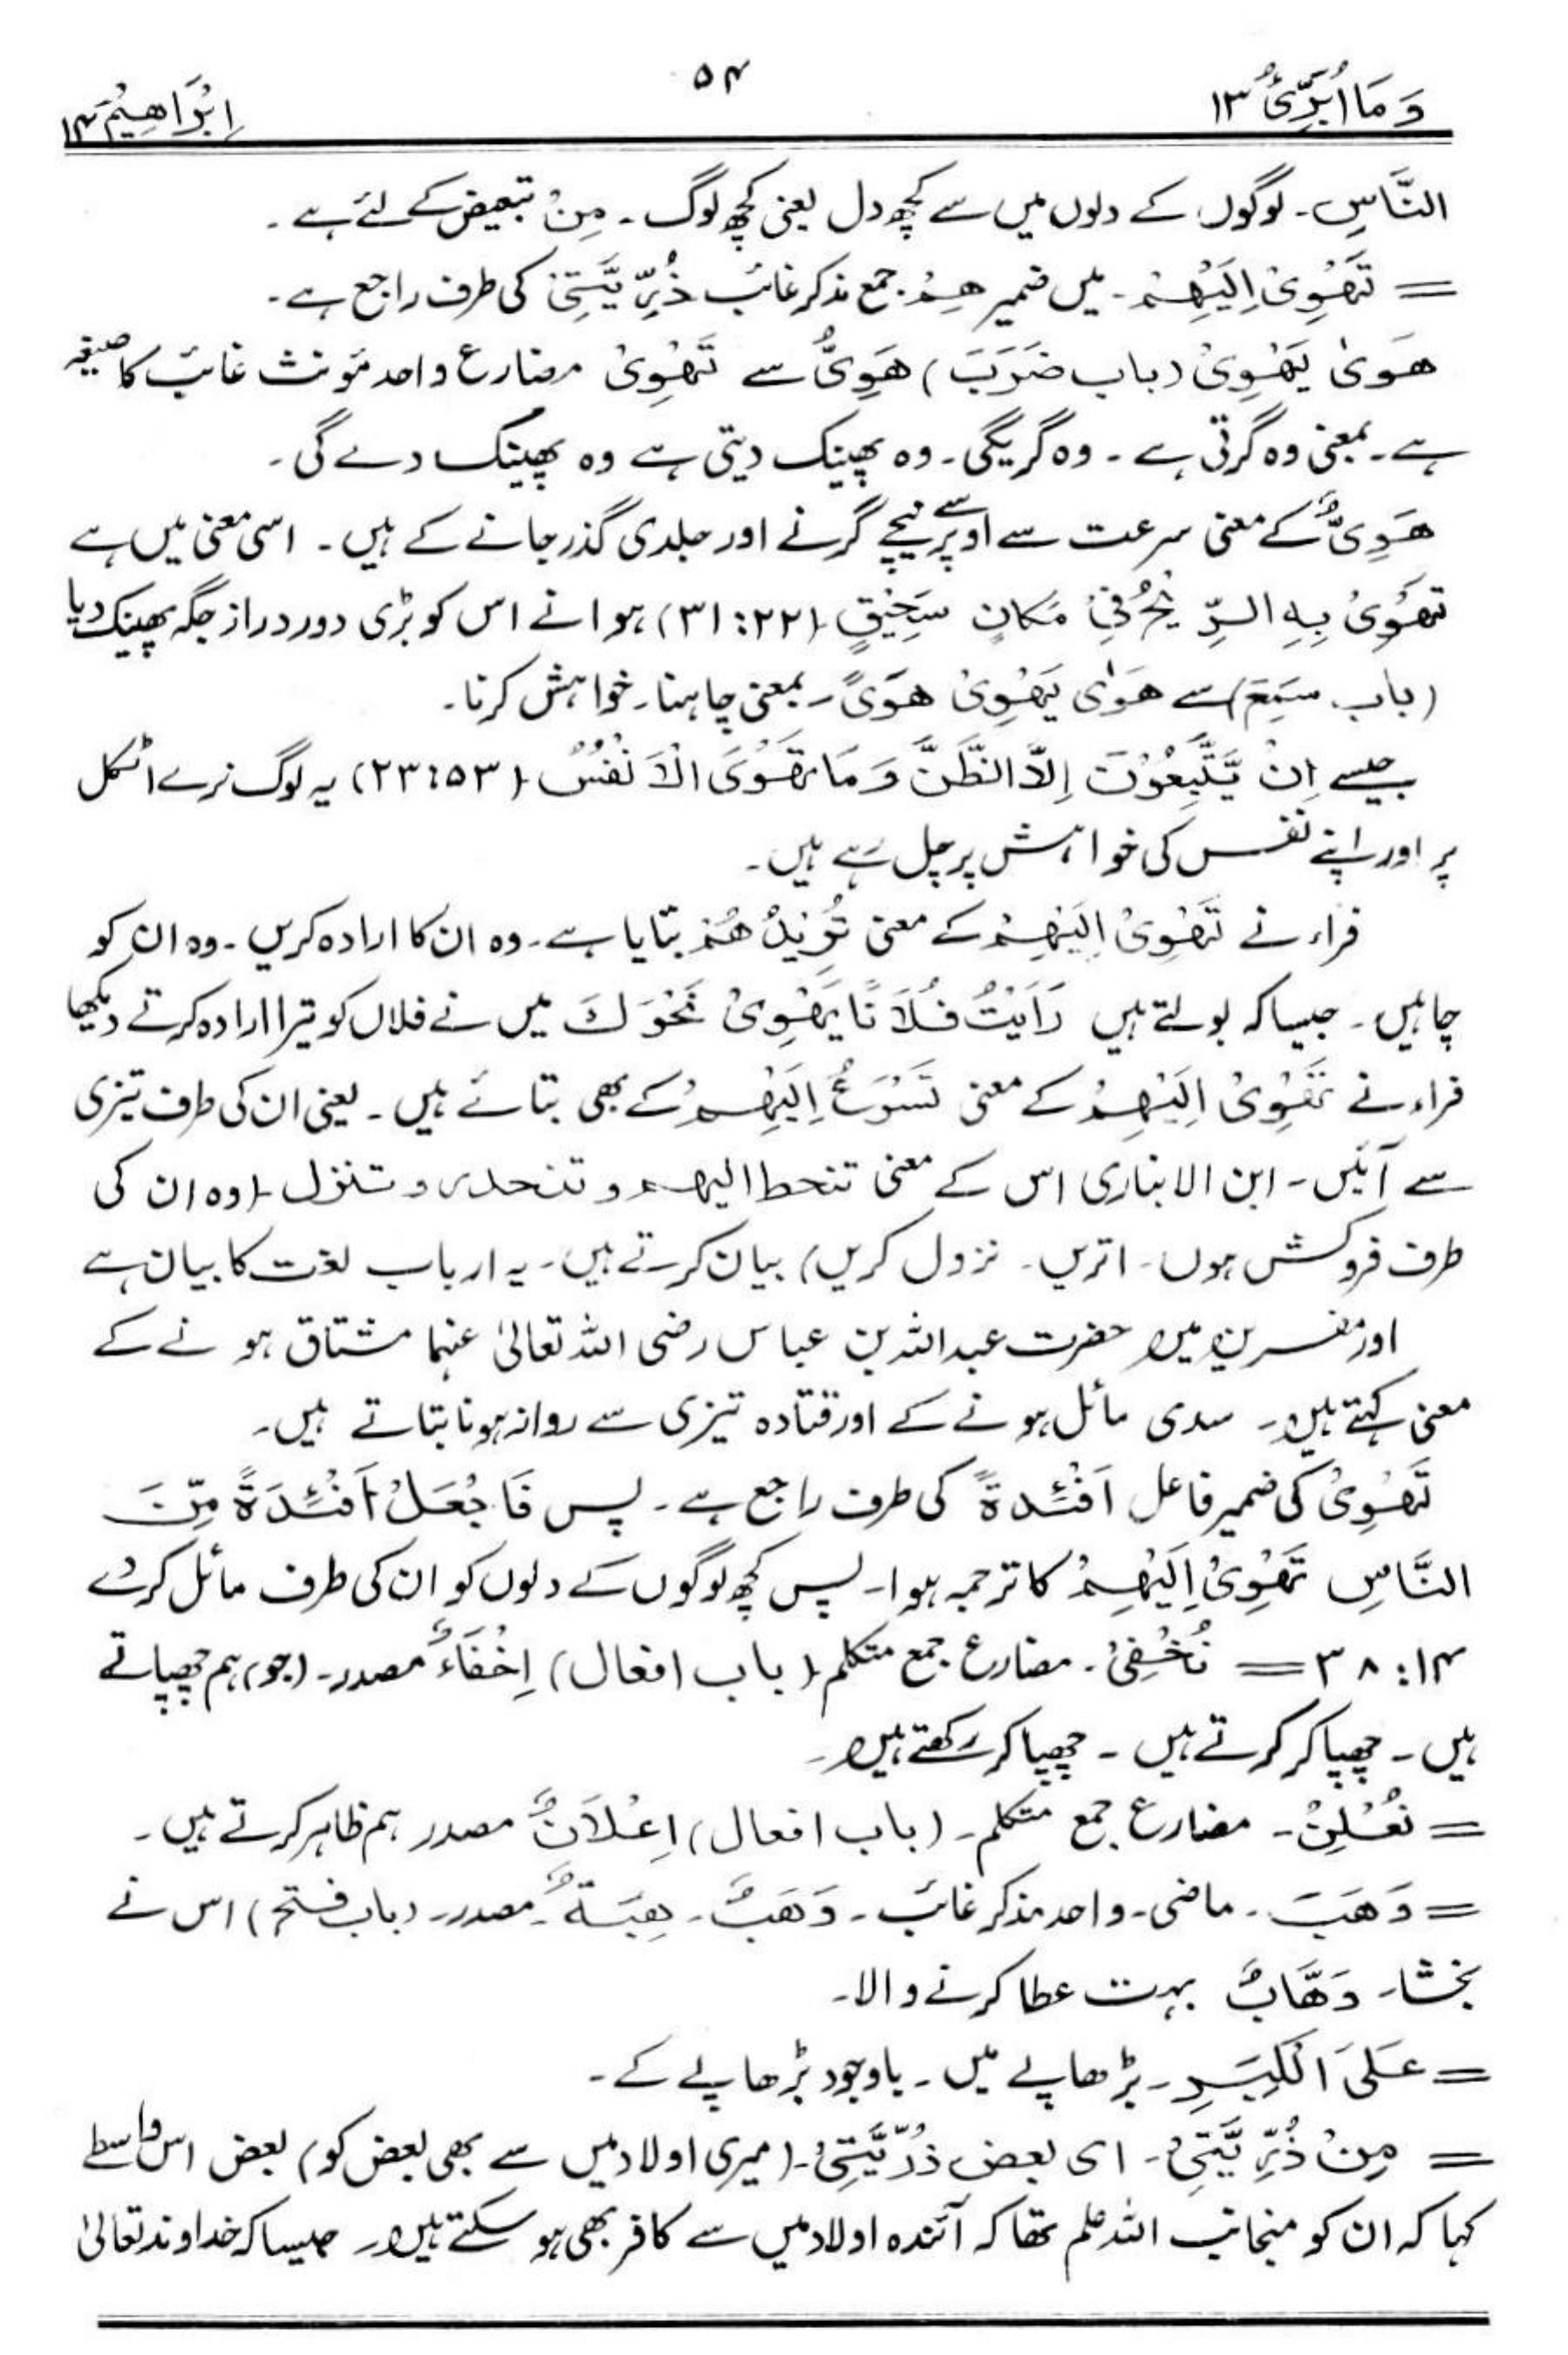 وَمَا اُبَرِّئُ ۱۳
۵۴
اِبْرَاهِیْم ۱۴
النَّاسِ۔ لوگوں کے دلوں میں سے کچھ دل یعنی کچھ لوگ۔ مِنْ تبعیض کے لئے ہے۔
= تَهْوِیْ اِلَیْهِمْ۔ میں ضمیر هِمْ جمع مذکر غائب ذُرِّیَّتِیْ کی طرف راجع ہے۔
هَوٰی یَهْوِیْ (باب ضَرَبَ) هَوِیٌّ سے تَهْوِیْ مضارع واحد مؤنث غائب کا صیغہ
ہے۔ بمعنی وہ گرتی ہے۔ وہ گریگی۔ وہ پھینک دیتی ہے وہ پھینک دے گی۔
هَوِیٌّ کے معنی سرعت سے اوپر سے نیچے گرنے اور جلدی گذر جانے کے ہیں۔ اسی معنی میں ہے
تَهْوِیْ بِهِ الرِّیْحُ فِیْ مَکَانٍ سَحِیْقٍ (۲۲:۳۱) ہوا نے اس کو بڑی دور دراز جگہ پھینک دیا
(باب سَمِعَ) سے هَوٰی یَهْوِیْ هَوًی۔ بمعنی چاہنا۔ خواہش کرنا۔
جیسے اِنْ یَّتَّبِعُوْنَ اِلَّا الظَّنَّ وَمَا تَهْوَی الْاَنْفُسُ (۵۳:۲۳) یہ لوگ نرے اٹکل
پر اور اپنے نفس کی خواہش پر چل رہے ہیں۔
فراء نے تَهْوِیْ اِلَیْهِمْ کے معنی تُرِیْدُ هُمْ بتایا ہے۔ وہ ان کا ارادہ کریں۔ وہ ان کو
چاہیں۔ جیسا کہ بولتے ہیں رَاَیْتُ فُلَانًا یَهْوِیْ نَحْوَكَ میں نے فلاں کو تیرا ارادہ کرتے دیکھا
فراء نے تَهْوِیْ اِلَیْهِمْ کے معنی تَسْرَعُ اِلَیْهِمْ کے بھی بتائے ہیں۔ یعنی ان کی طرف تیزی
سے آئیں۔ ابن الانباری اس کے معنی تنحط الیهم و تنحدر و تنزل (وہ ان کی
طرف فروکش ہوں۔ اتریں۔ نزول کریں) بیان کرتے ہیں۔ یہ ارباب لغت کا بیان ہے
اور مفسرین میں حضرت عبداللہ بن عباس رضی اللہ تعالیٰ عنہما مشتاق ہونے کے
معنی کہتے ہیں۔ سدی مائل ہونے کے اور قتادہ تیزی سے روانہ ہونا بتاتے ہیں۔
تَهْوِیْ کی ضمیر فاعل اَفْئِدَةً کی طرف راجع ہے۔ پس فَاجْعَلْ اَفْئِدَةً مِّنَ
النَّاسِ تَهْوِیْ اِلَیْهِمْ کا ترجمہ ہوا۔ پس کچھ لوگوں کے دلوں کو ان کی طرف مائل کردے
۱۴:۳۸ = نُخْفِیْ۔ مضارع جمع متکلم (باب افعال) اِخْفَاءٌ مصدر۔ (جو) ہم چھپاتے
ہیں۔ چھپا کر کرتے ہیں۔ چھپا کر رکھتے ہیں۔
= نُعْلِنُ۔ مضارع جمع متکلم۔ (باب افعال) اِعْلَانٌ مصدر ہم ظاہر کرتے ہیں۔
= وَهَبَ۔ ماضی۔ واحد مذکر غائب۔ وَهَبٌ۔ هِبَةٌ۔ مصدر۔ (باب فتح) اس نے
بخشا۔ وَهَّابٌ بہت عطا کرنے والا۔
= عَلَی الْکِبَرِ۔ بڑھاپے میں۔ باوجود بڑھاپے کے۔
= مِنْ ذُرِّیَّتِیْ۔ ای بعض ذُرِّیَّتِیْ۔ (میری اولاد میں سے بھی بعض کو) بعض اس واسطے
کہا کہ ان کو منجانب اللہ علم تھا کہ آئندہ اولاد میں سے کافر بھی ہو سکتے ہیں۔ جیسا کہ خداوند تعالیٰ